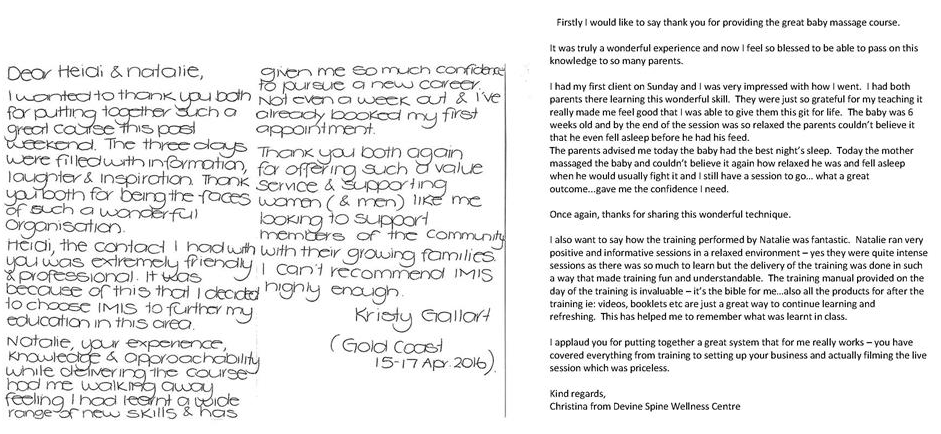 Dear Heidi & Natalie,
I wanted to thank you both
for putting together such a
great course this past
weekend. The three days
were filled with information,
laughter & inspiration. Thank
you both for being the faces
of such a wonderful
organisation.
Heidi, the contact I had with
you was extremely friendly
& professional. It was
because of this that I decided
to choose IMIS to further my
education in this area.
Natalie, your experience,
knowledge & approachability
while delivering the course
had me walking away
feeling I had learnt a wide
range of new skills & has
given me so much confidence
to pursue a new career.
Not even a week out & I've
already booked my first
appointment.
Thank you both again
for offering such a value
service & supporting
women (& men) like me
looking to support
members of the community
with their growing families.
I can't recommend IMIS
highly enough.
Kristy Gallart
(Gold Coast
15-17 Apr 2016).
Firstly I would like to say thank you for providing the great baby massage course.
It was truly a wonderful experience and now I feel so blessed to be able to pass on this
knowledge to so many parents.
I had my first client on Sunday and I was very impressed with how I went. I had both
parents there learning this wonderful skill. They were just so grateful for my teaching it
really made me feel good that I was able to give them this git for life. The baby was 6
weeks old and by the end of the session was so relaxed the parents couldn't believe it
that he even fell asleep before he had his feed.
The parents advised me today the baby had the best night's sleep. Today the mother
massaged the baby and couldn't believe it again how relaxed he was and fell asleep
when he would usually fight it and I still have a session to go... what a great
outcome...gave me the confidence I need.
Once again, thanks for sharing this wonderful technique.
I also want to say how the training performed by Natalie was fantastic. Natalie ran very
positive and informative sessions in a relaxed environment – yes they were quite intense
sessions as there was so much to learn but the delivery of the training was done in such
a way that made training fun and understandable. The training manual provided on the
day of the training is invaluable – it's the bible for me...also all the products for after the
training ie: videos, booklets etc are just a great way to continue learning and
refreshing. This has helped me to remember what was learnt in class.
I applaud you for putting together a great system that for me really works – you have
covered everything from training to setting up your business and actually filming the live
session which was priceless.
Kind regards,
Christina from Devine Spine Wellness Centre